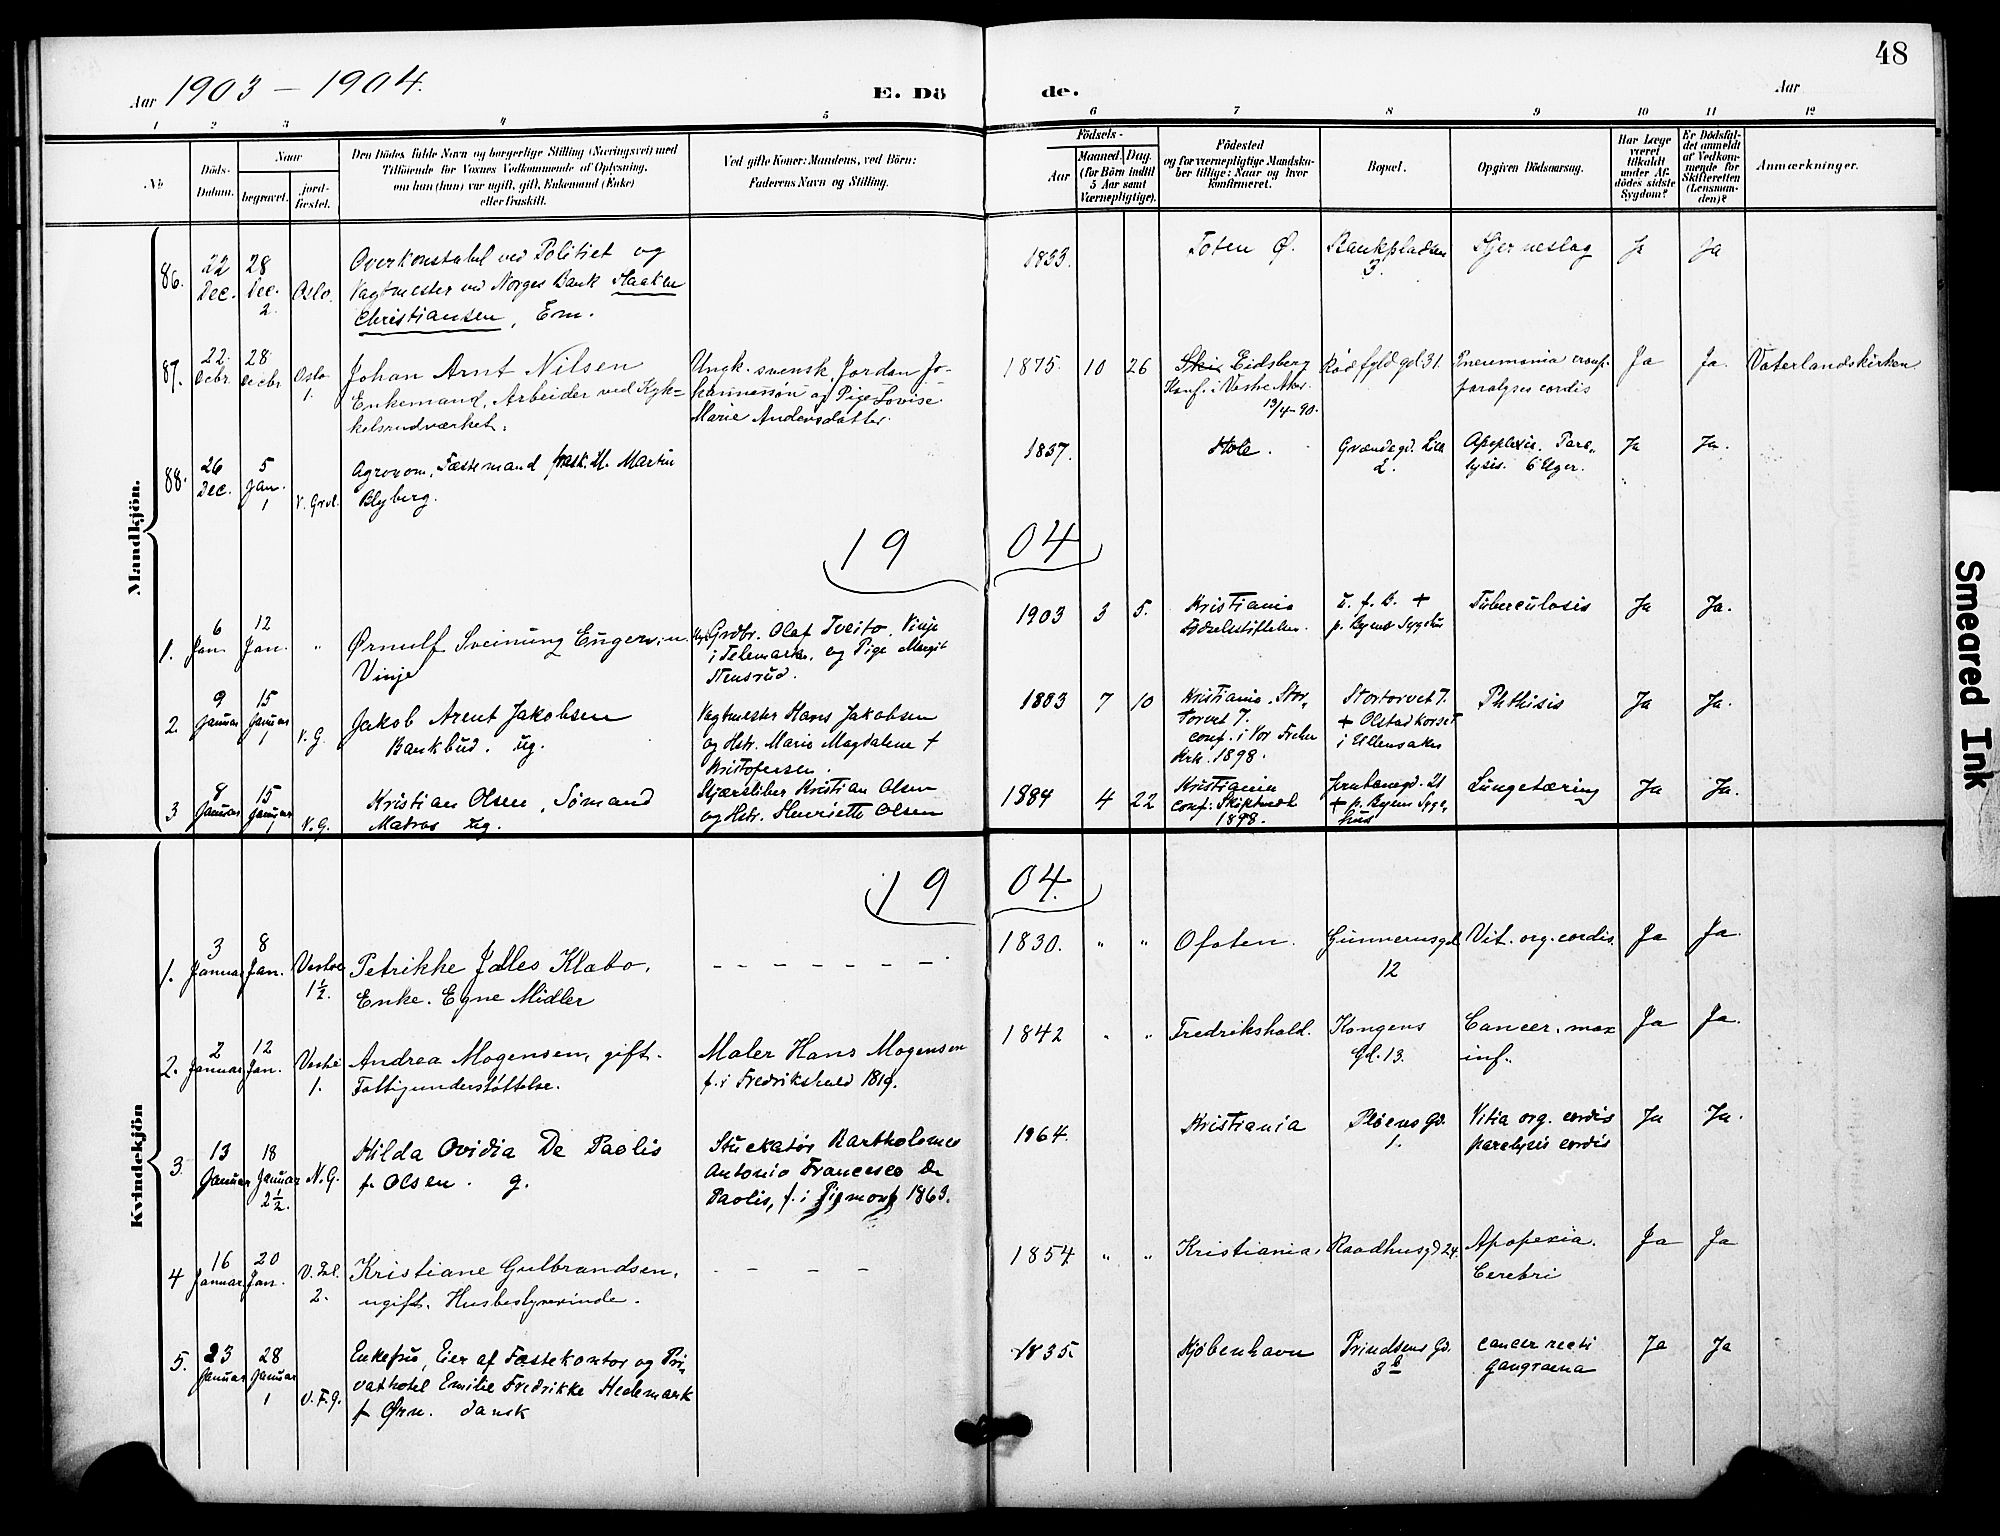 48
Aar 1903 – 1904.
E. Dö de.
Aar
1 2 3 4 5 6 7 8 9 10 11 12
Nr.
Döds-
Datum.
Naar
begravet.
jord-
fæstet.
Den Dödes fulde Navn og borgerlige Stilling (Næringsvei) med
Tilföiende for Voxnes Vedkommende af Oplysning,
om han (hun) var ugift, gift, Enkemand (Enke)
eller fraskilt.
Ved gifte Koner: Mandens, ved Börn:
Faderens Navn og Stilling.
Födsels-
Aar
Maaned. Dag.
(for Börn indtil
5 Aar samt
Værnepligtige).
Födested
og for værnepligtige Mandska-
ber tillige: Naar og hvor
konfirmeret.
Bopæl.
Opgiven Dödsaarsag.
Har Læge
været
tilkaldt
under Af-
dödes sidste
Sygdom?
Er Dödsfal-
det anmeldt
af Vedkom-
mende for
Skifteretten
(Lensman-
den)?
Anmærkninger.
Mandkjön.
86.
22
Dec.
28
Dec.
2.
Oslo.
Overkonstabel ved Politiet og
Vagtmester ved Norges Bank Haaken
Christiansen, Em.
1833.
Toten Ø.
Bankpladsen
3.
Hjerneslag
Ja
Ja
87.
22.
Decbr.
28
Decbr.
Oslo
1.
Johan Arnt Nilsen
Enkemand, Arbeider ved Kyk-
kelsrudværket.
Ungk. svensk Jordan Jo-
hannessön og Pige Lovise
Marie Andersdatter.
1875. 10 26
Ski. Eidsberg
Konf. i Vestre Aker
13/4-90.
Rödfyldgd. 31.
Pneumonia croup.
paralyses cordis
Ja
Ja.
Vaterlandskirken
88.
26
Dec.
5
Jan.
1
V. Grvl.
Agronom, Fæstemand frask. H. Martin
Blyberg.
1837.
Hole.
Grændsegd. Lille
2.
Apoplexis. Para-
lysis. 6 Uger.
Ja
Ja.
19 04
1.
6
Jan.
12
Jan.
"
Ørnulf Sveinung Engen, u.
Vinje
Grdbr. Olaf Tveito, Vinje
i Telemarken, og Pige Margit
Stensrud.
1903 3 5.
Kristiania
Födselsstiftelsen.
u. f. B. +
p. Byens Sygehus
Tuberculosis
Ja
Ja.
2.
9
Januar
15
Januar
1
V. G.
Jakob Arent Jakobsen
Bankbud. ug.
Vagtmester Hans Jakobsen
og Hstr. Marie Magdalene f
Kristofersen.
1883 7 10
Kristiania. Stor-
torvet 7.
conf. i Vor Frelser
Krk. 1898.
Stortorvet 7.
+ Olstad korset
i Ullensaker
Phthisis
Ja
Ja.
3
8
Januar
15
Januar
1
V. G.
Kristian Olsen, Sömand
Matros ug.
Skjærsliber Kristian Olsen
og Hstr. Henriette Olsen
1884 4 22
Kristiania
conf.
1898.
Jernbanegd. 21
+ p. Byens Syge-
hus
Lungetæring
Ja
Ja.
Kvindekjön
19 04.
1.
3
Januar
8
Jan.
Vestre
1½.
Petrikke Jalles Klabo,
Enke. Egne Midler
– – – – – – –
1830. " "
Ofoten.
Gunnerusgd.
12
Vit. org. cordis.
Ja
Ja.
2.
2
Januar
12
Jan.
Vestre
1.
Andrea Mogensen, gift.
Fattigunderstöttelse.
Maler Hans Mogensen
f. i Fredrikshald 1819.
1842 " "
Fredrikshald.
Kongens
Gd. 13.
Cancer. max
inf.
Ja
Ja.
3
13
Januar
18
Januar
2½.
N. G.
Hilda Ovidia De Paolis
f. Olsen. g.
Stuckatör Bartholomeo
Antonio Francesco De
Paolis, f. i Pigmont 1863.
1864.
Kristiania
Plöens Gd.
1.
Vitia org. cordis
paralysis cordis
Ja
Ja.
4
16
Januar
20
Jan.
2.
Kristiane Gulbrandsen,
ugift. Husbestyrerinde.
– – – –
1854 " "
Kristiania.
Raadhusgd 24.
Apopexia.
Cerebri
Ja
Ja
5.
23
Januar
28
Januar
1
V. F. G.
Enkefru, Eier af Fæstekontor og Pri-
vathotel Emilie Fredrikke Hedemark
f Ørn. dansk
1835.
Kjöbenhavn
Prindsens Gd.
3b
cancer recti
gangraena
Ja
Ja
Smeared Ink